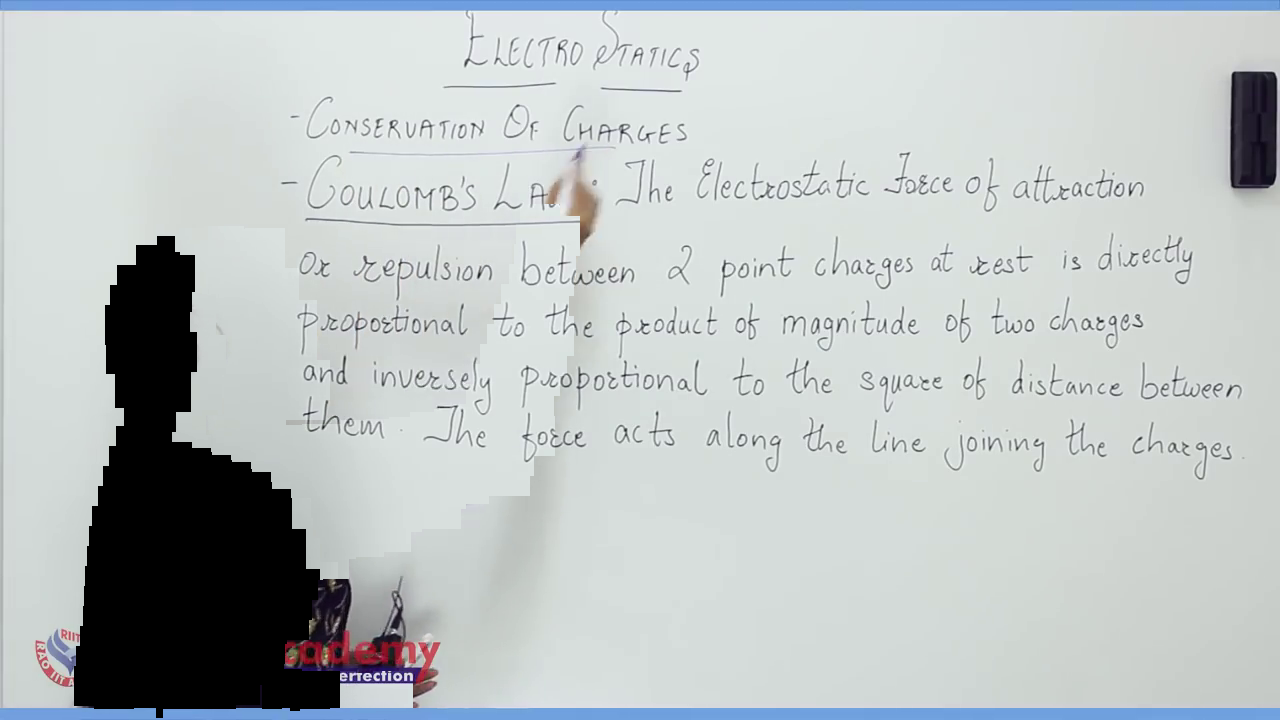 ELECTRO STATICS
- CONSERVATION OF CHARGES
- COULOMB'S LA : The Electrostatic Force of attraction
or repulsion between 2 point charges at rest is directly
proportional to the product of magnitude of two charges
and inversely proportional to the square of distance between
them. The force acts along the line joining the charges.
RIIT
RAO IIT A
cademy
errection